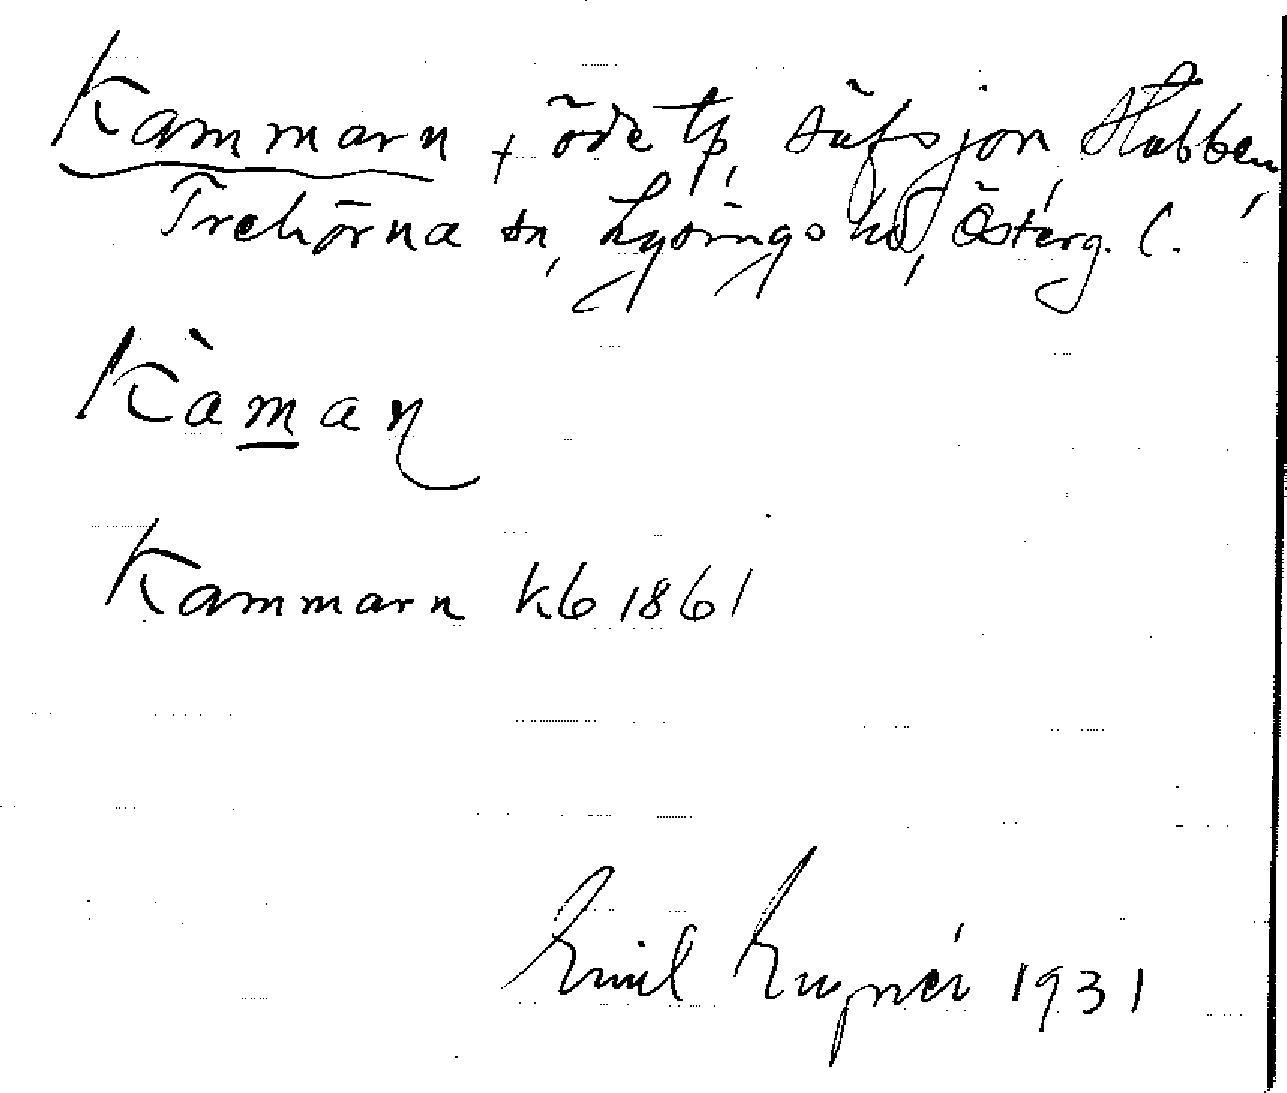 Kammarn + öde tp, Säfsjön, Stabben,
Trehörna sn, Lysings hd, Österg. l.
Kàman
Kammarn kb 1861
Emil 1931